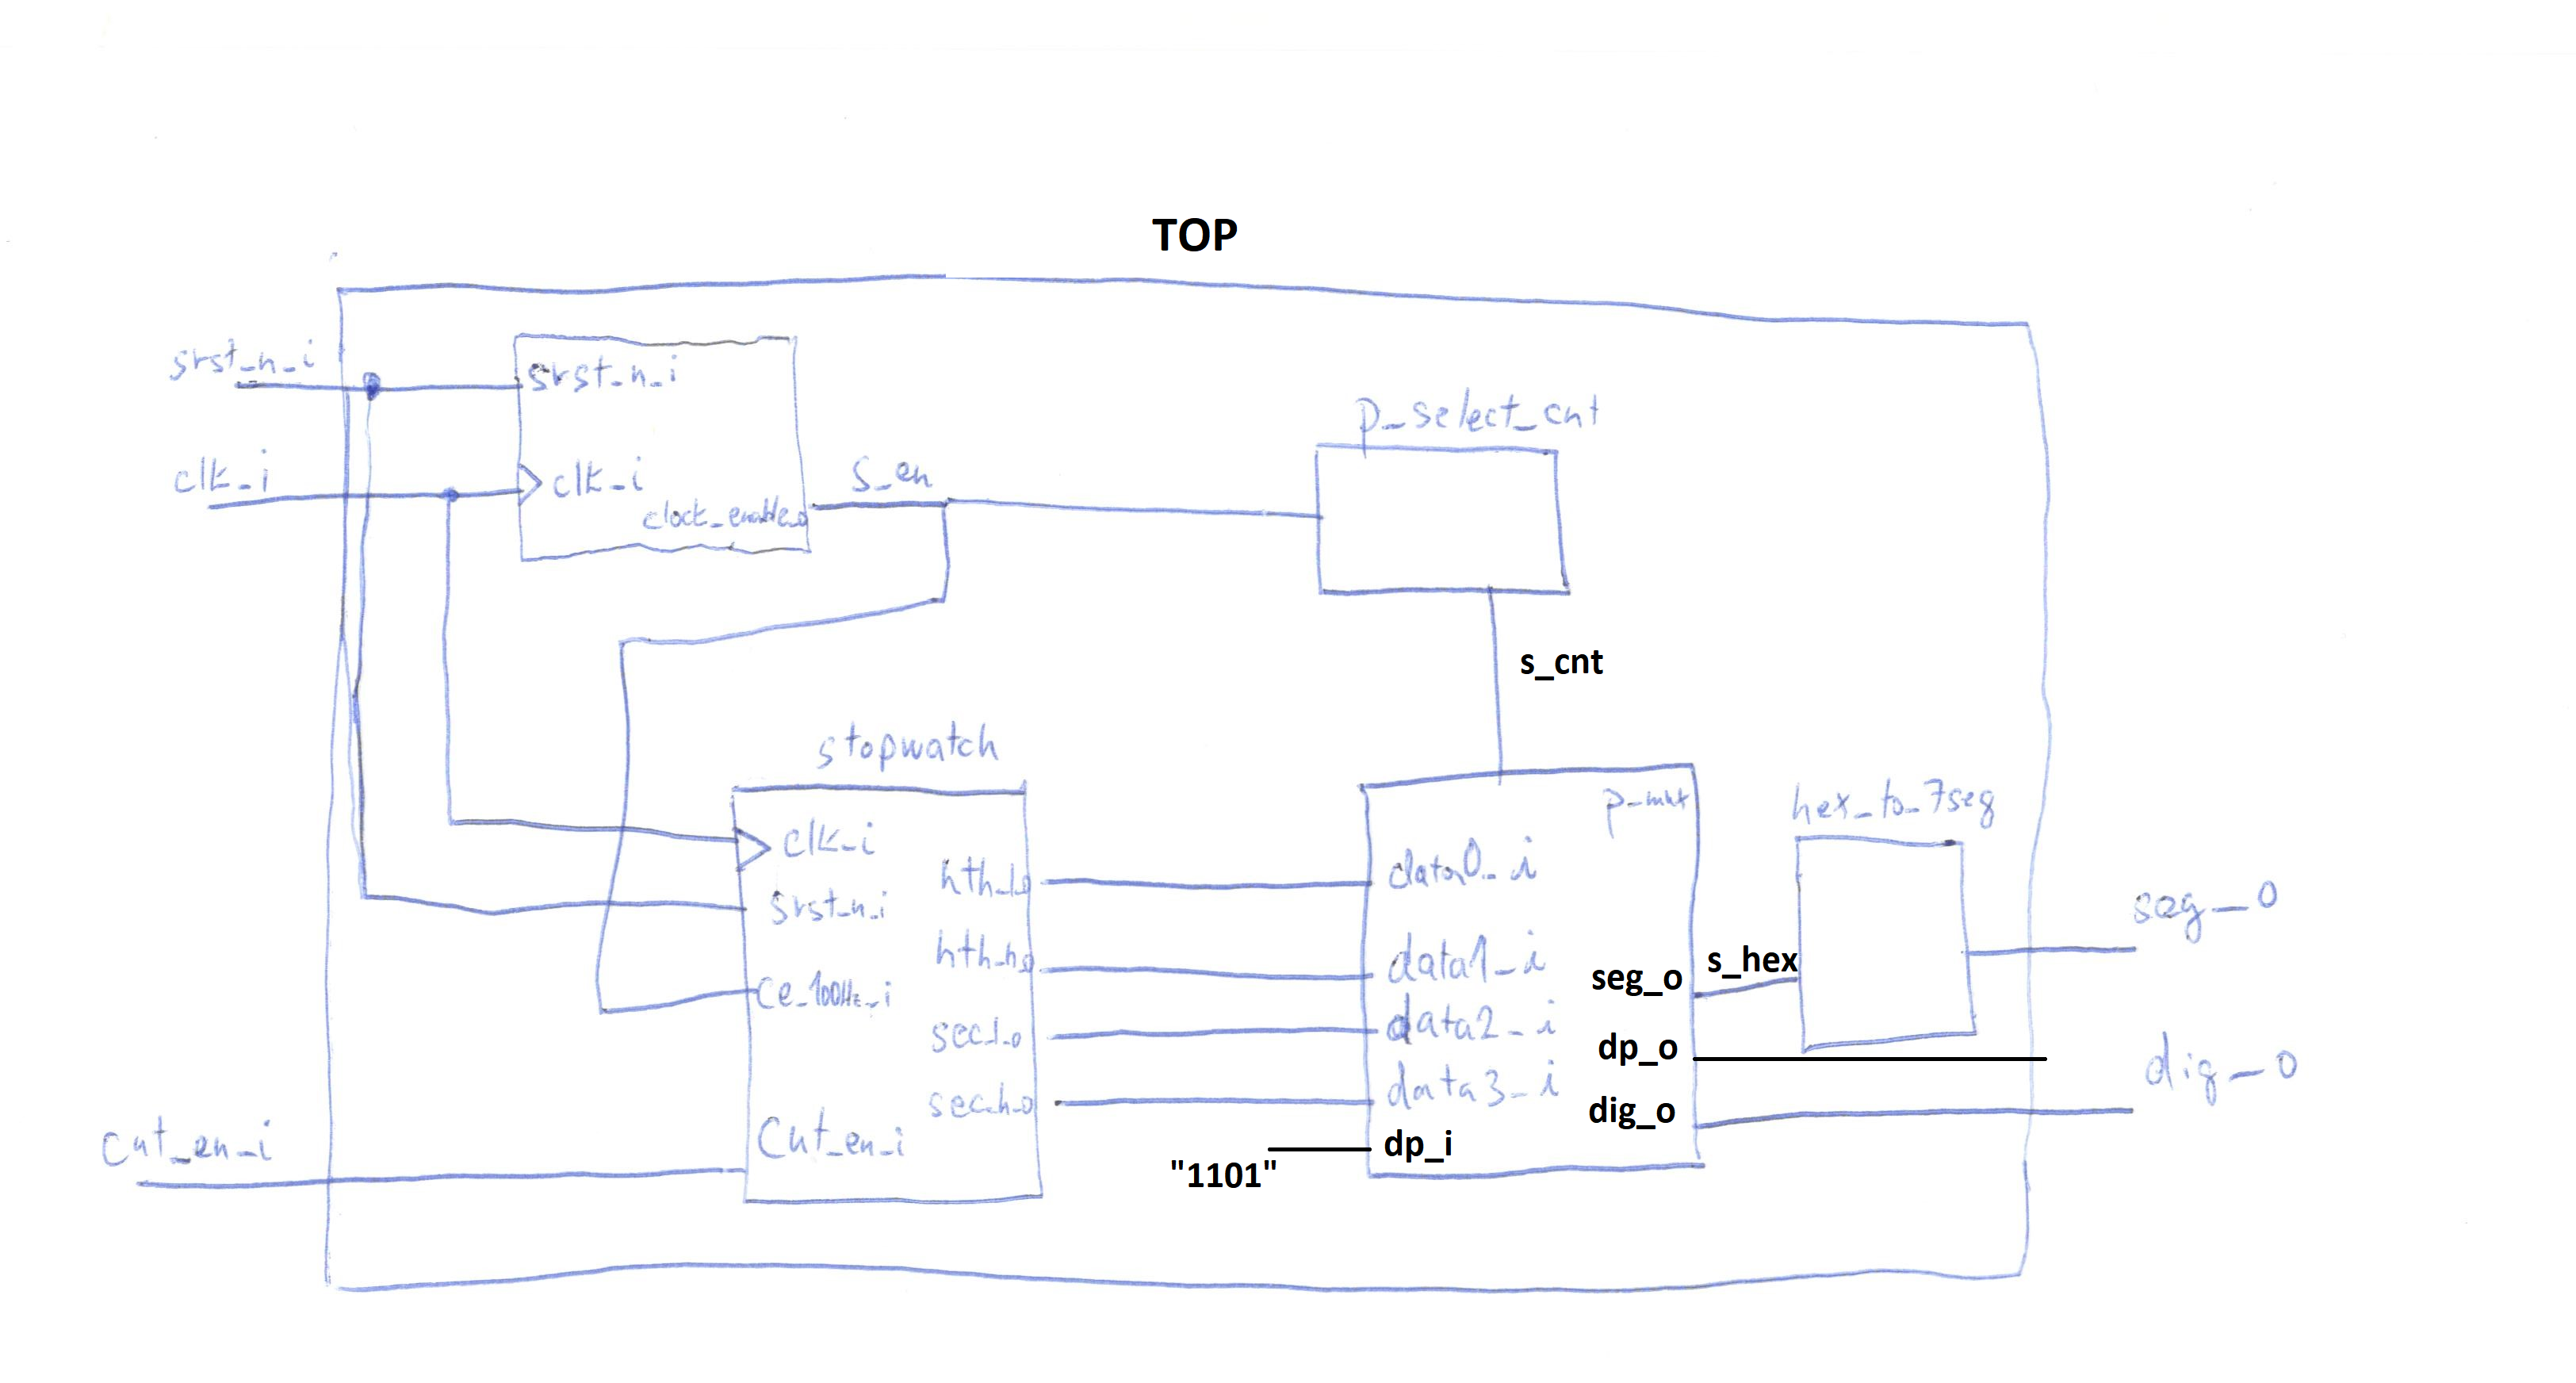 TOP
srst_n_i
srst_n_i
clk_i
clk_i
clock_enable_o
s_en
p_select_cnt
s_cnt
stopwatch
clk_i
srst_n_i
ce_100Hz_i
cnt_en_i
Cnt_en_i
hth_l_o
hth_h_o
sec_l_o
sec_h_o
p_mux
data0_i
data1_i
data2_i
data3_i
dp_i
"1101"
seg_o
dp_o
dig_o
s_hex
hex_to_7seg
seg_o
dig_o